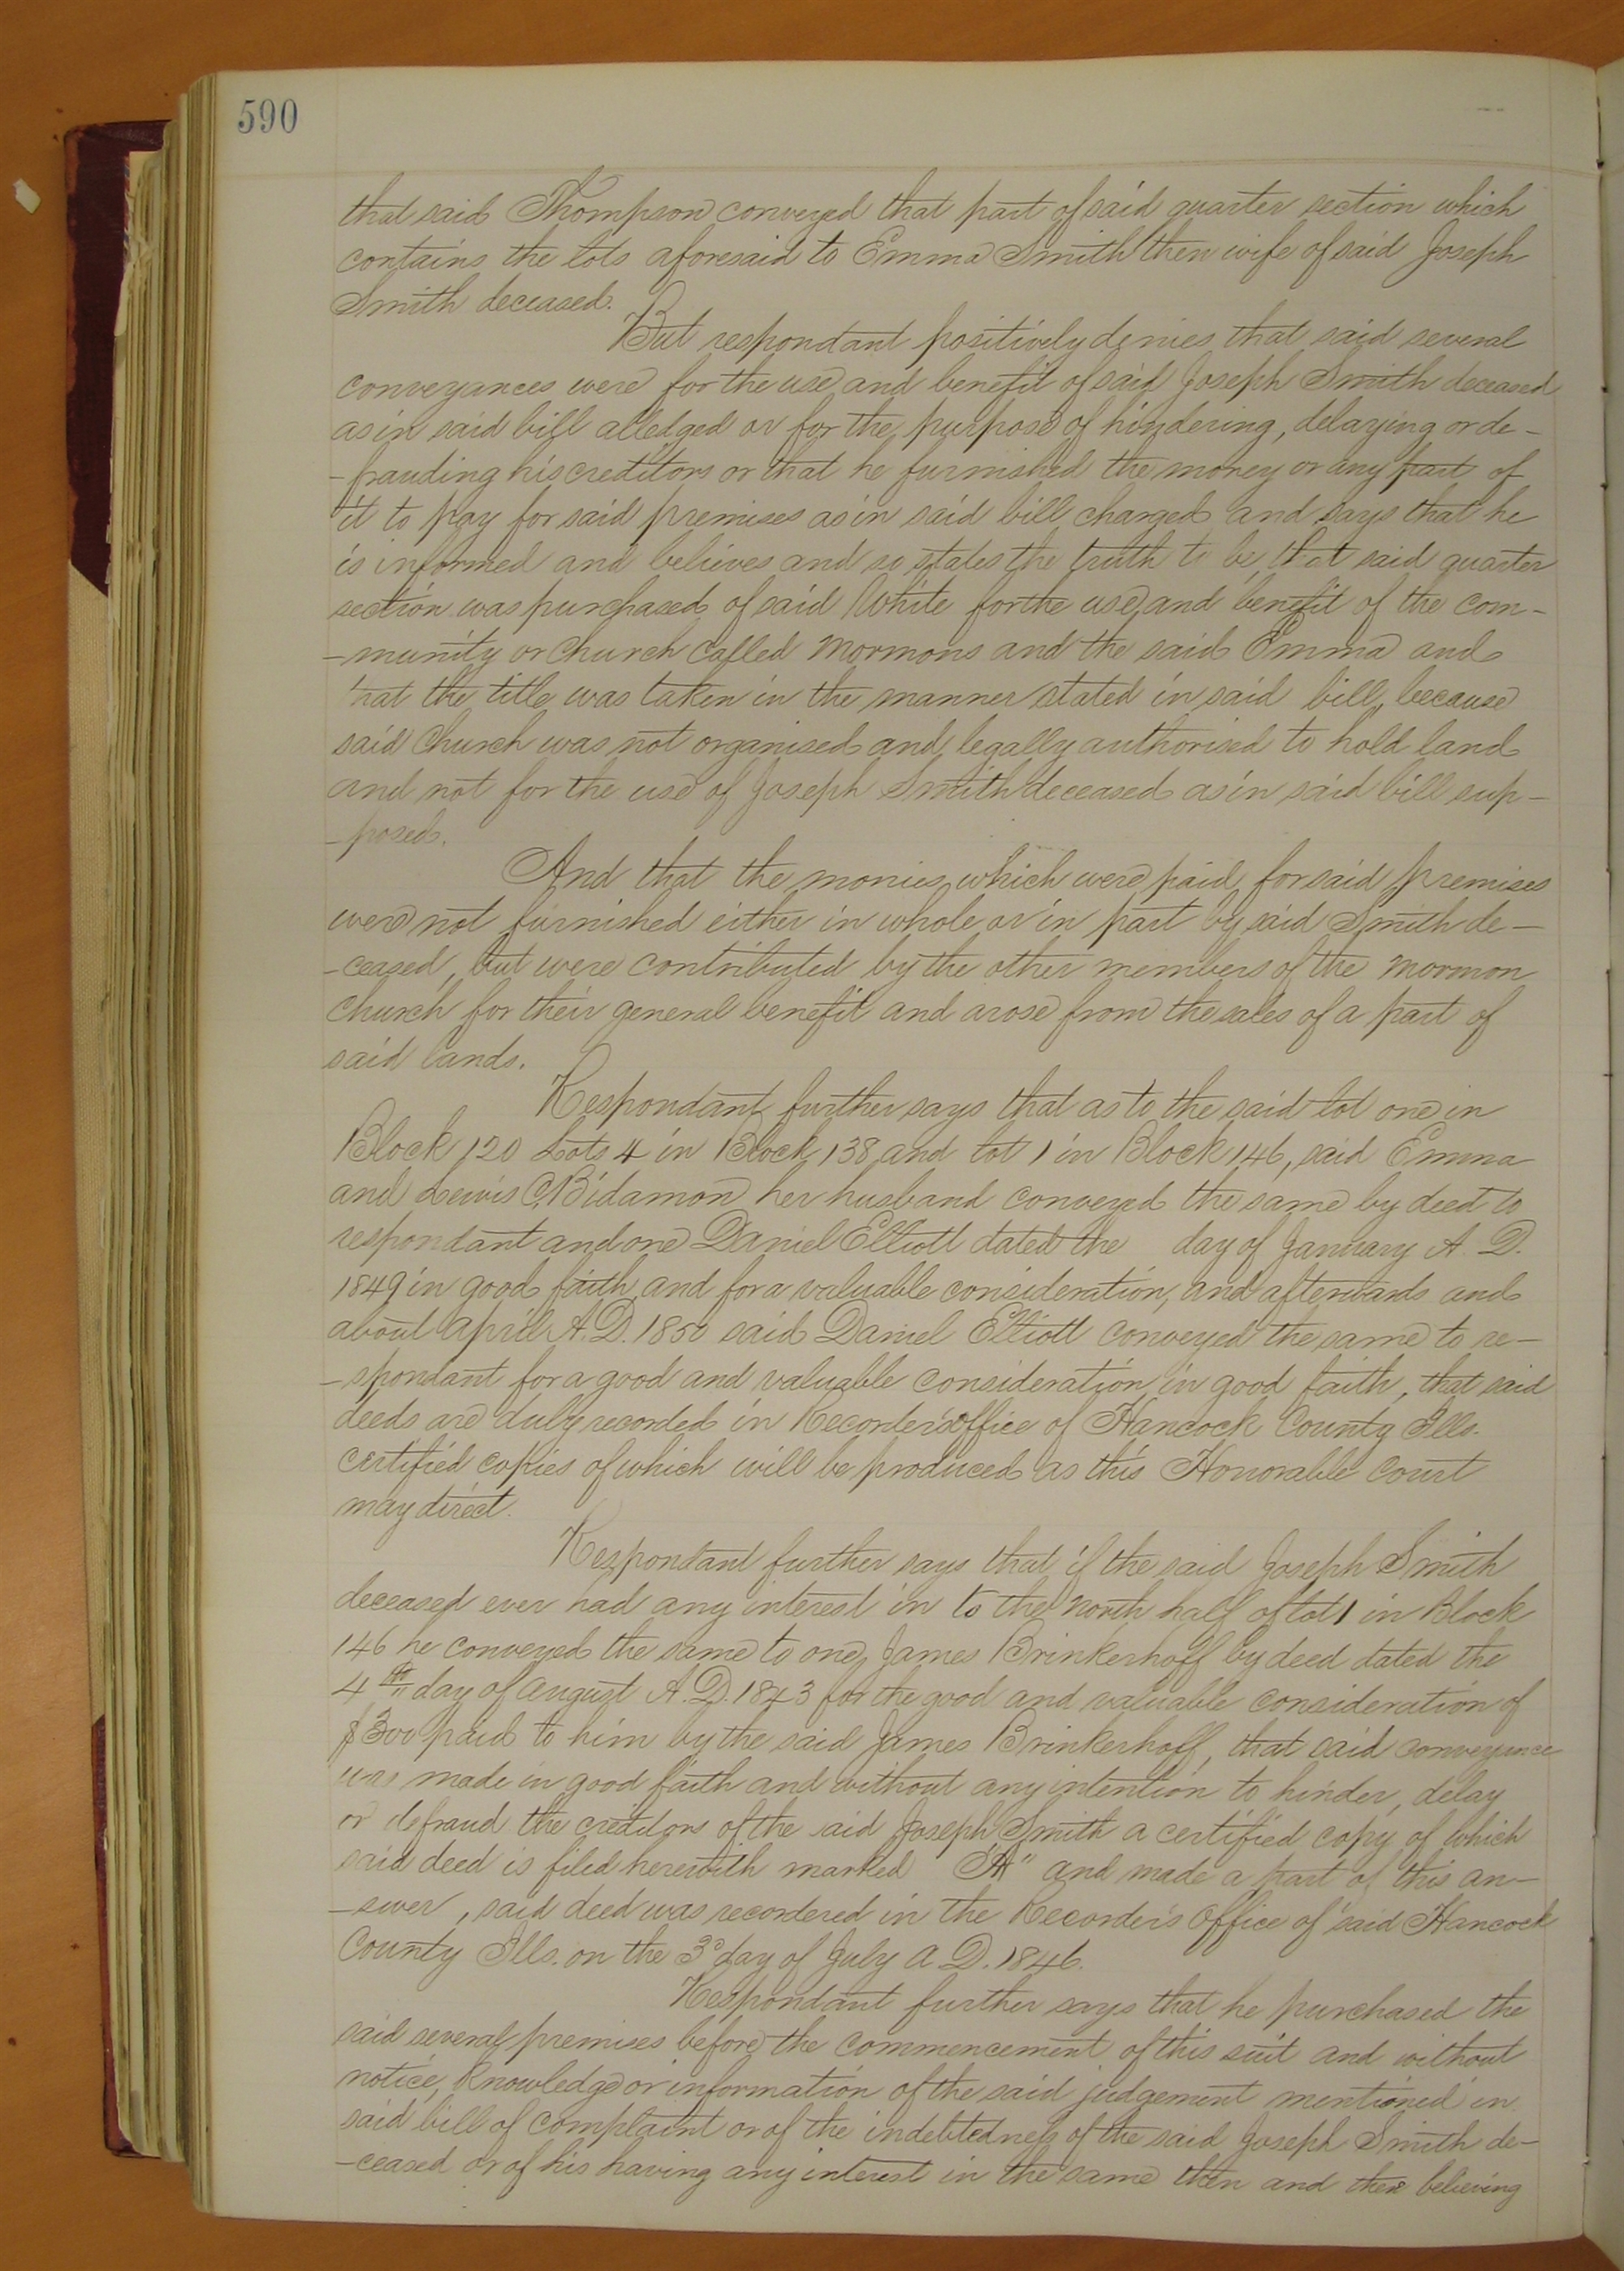 590
that said Thompson conveyed that part of said quarter section which
contains the lots aforesaid to Emma Smith then wife of said Joseph
Smith deceased.
But respondant positively denies that said several
conveyances were for the use and benefit of said Joseph Smith deceased
as in said bill alledged or for the purpose of hindering, delaying or de-
-frauding his creditors or that he furnished the money or any part of
it to pay for said premises as in said bill charged and says that he
is informed and believes and so states the truth to be, that said quarter
section was purchased of said White for the use and benefit of the com-
-munity or Church called Mormons and the said Emma and
that the title was taken in the manner stated in said bill, because
said Church was not organised and legally authorised to hold land
and not for the use of Joseph Smith deceased as in said bill sup-
-posed.
And that the monies which were paid for said premises
were not furnished either in whole or in part by said Smith de-
-ceased, but were contributed by the other members of the Mormon
Church for their general benefit and arose from the sales of a part of
said lands.
Respondant further says that as to the said lot one in
Block 120 Lots 4 in Block 138 and lot 1 in Block 146, said Emma
and Lewis C. Bidamon her husband conveyed the same by deed to
respondant and one Daniel Elliott dated the day of January A. D.
1849 in good faith and for a valuable consideration, and afterwards and
about April A.D. 1850 said Daniel Elliott conveyed the same to re-
-spondant for a good and valuable consideration in good faith, that said
deeds are duly recorded in Recorder's office of Hancock County Ills.
certified copies of which will be produced as this Honorable Court
may direct.
Respondant further says that if the said Joseph Smith
deceased ever had any interest in to the North half of lot 1 in Block
146 he conveyed the same to one James Brinkerhoff by deed dated the
4th day of August A.D. 1843 for the good and valuable consideration of
$300 paid to him by the said James Brinkerhoff, that said conveyance
was made in good faith and without any intention to hinder, delay
or defraud the creditors of the said Joseph Smith a certified copy of which
said deed is filed herewith marked "A" and made a part of this an-
-swer, said deed was recordered in the Recorder's Office of said Hancock
County Ills. on the 3d day of July A D. 1846.
Respondant further says that he purchased the
said several premises before the commencement of this suit and without
notice, knowledge or information of the said judgement mentioned in
said bill of complaint or of the indebtedness of the said Joseph Smith de-
-ceased or of his having any interest in the same then and there believing